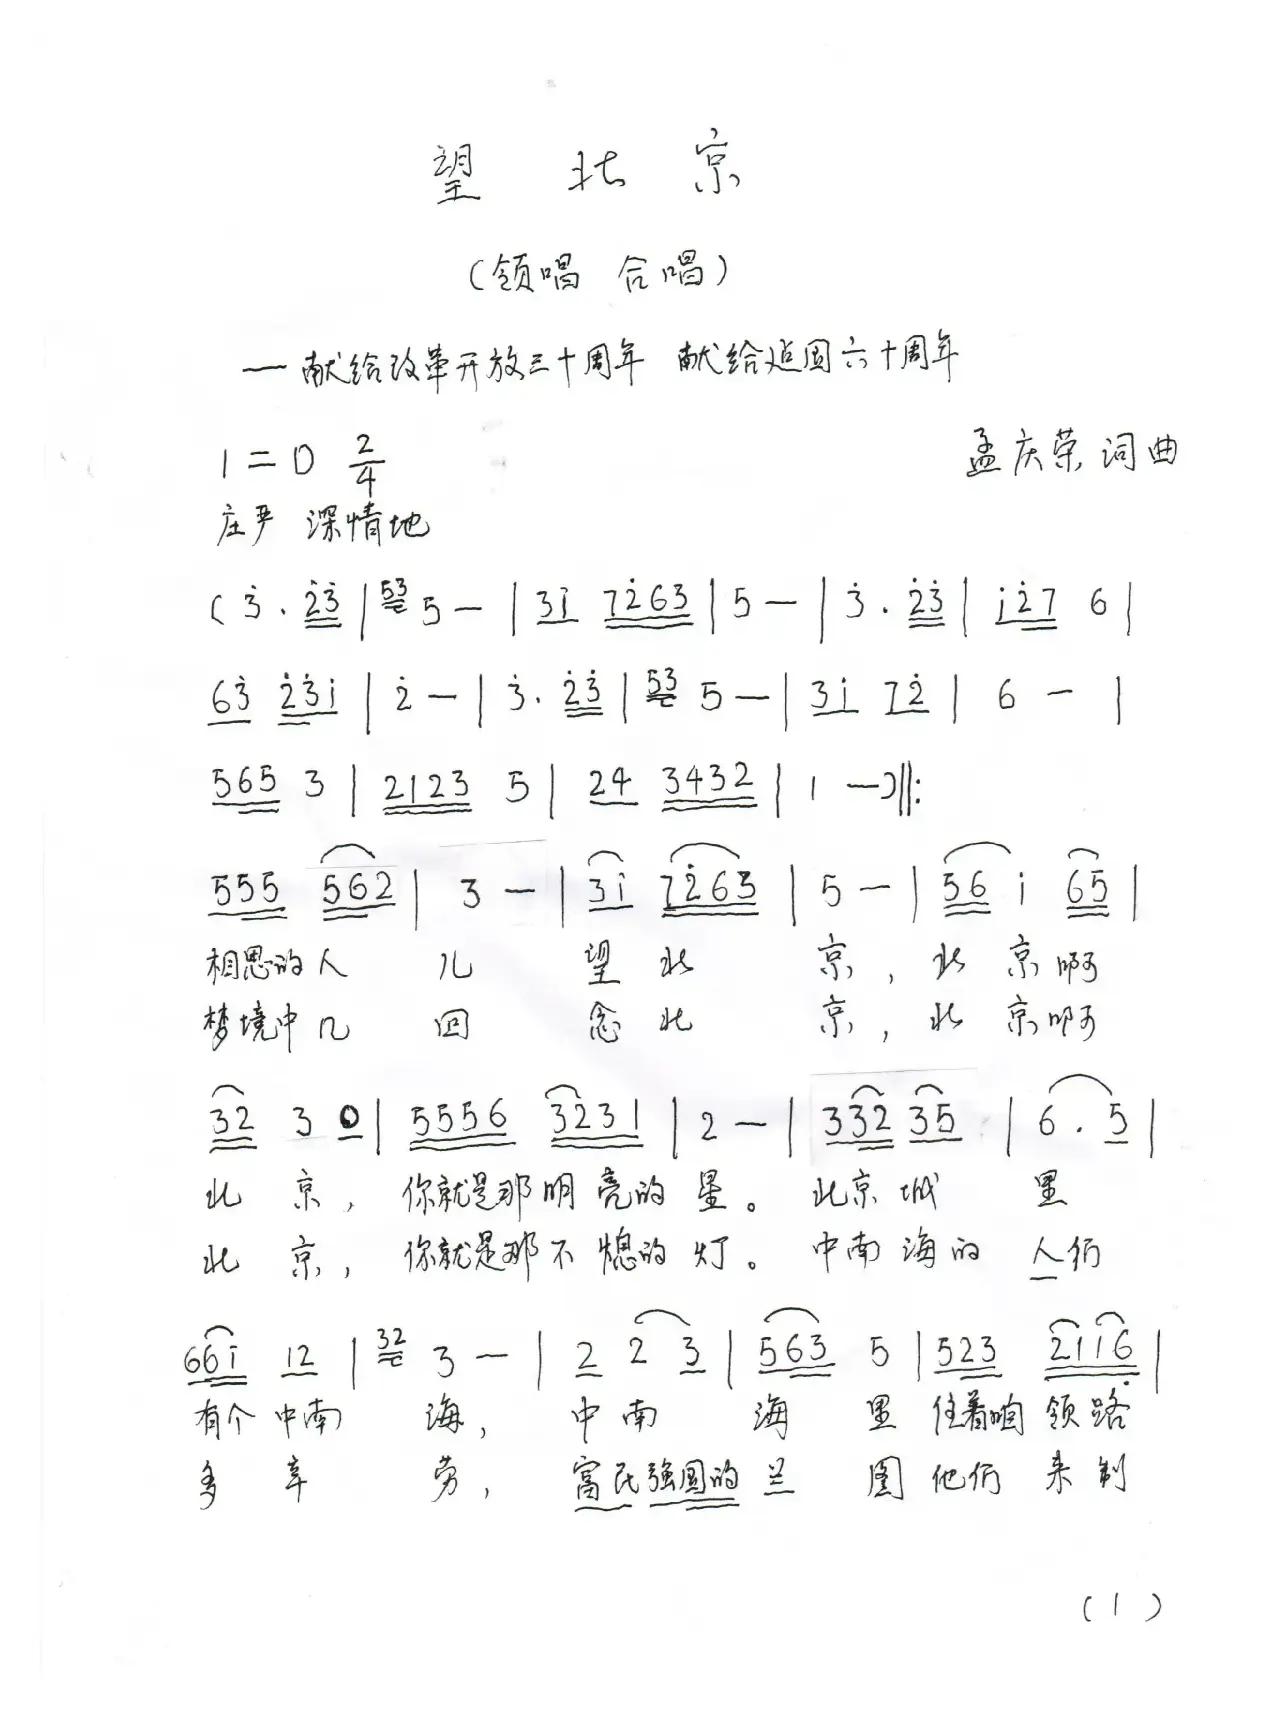 望 北 京
(领唱 合唱)
—献给改革开放三十周年 献给建国六十周年
1=D 2/4
孟庆荣 词曲
庄严 深情地
( 3̇ . 2̇3̇ | 53 5 — | 3i 72̇63 | 5 — | 3̇ . 2̇3̇ | i2̇7 6 |
63̇ 2̇3̇i | 2̇ — | 3̇ . 2̇3̇ | 53 5 — | 3i 72̇ | 6 — |
565 3 | 2123 5 | 24 3432 | 1 — )‖:
555 562 | 3 — | 3i 72̇63 | 5 — | 56 i 65 |
相思的人 儿 望 北 京, 北 京啊
梦境中几 回 念 北 京, 北 京啊
32 3 0 | 5556 3231 | 2 — | 332 35 | 6 . 5 |
北 京, 你就是那明亮的 星。 北京 城 里
北 京, 你就是那不熄的 灯。 中南 海的 人们
66i 12 | 32 3 — | 2 2 3 | 563 5 | 523 2116̣ |
有个 中南 海, 中 南 海 里 住着咱 领 路
多 辛 劳, 富民强国的 兰 图 他们 来 制
(1)